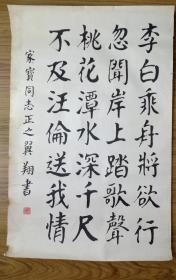 李白乘舟將欲行
忽聞岸上踏歌聲
桃花潭水深千尺
不及汪倫送我情
家寶同志正之翼翔書